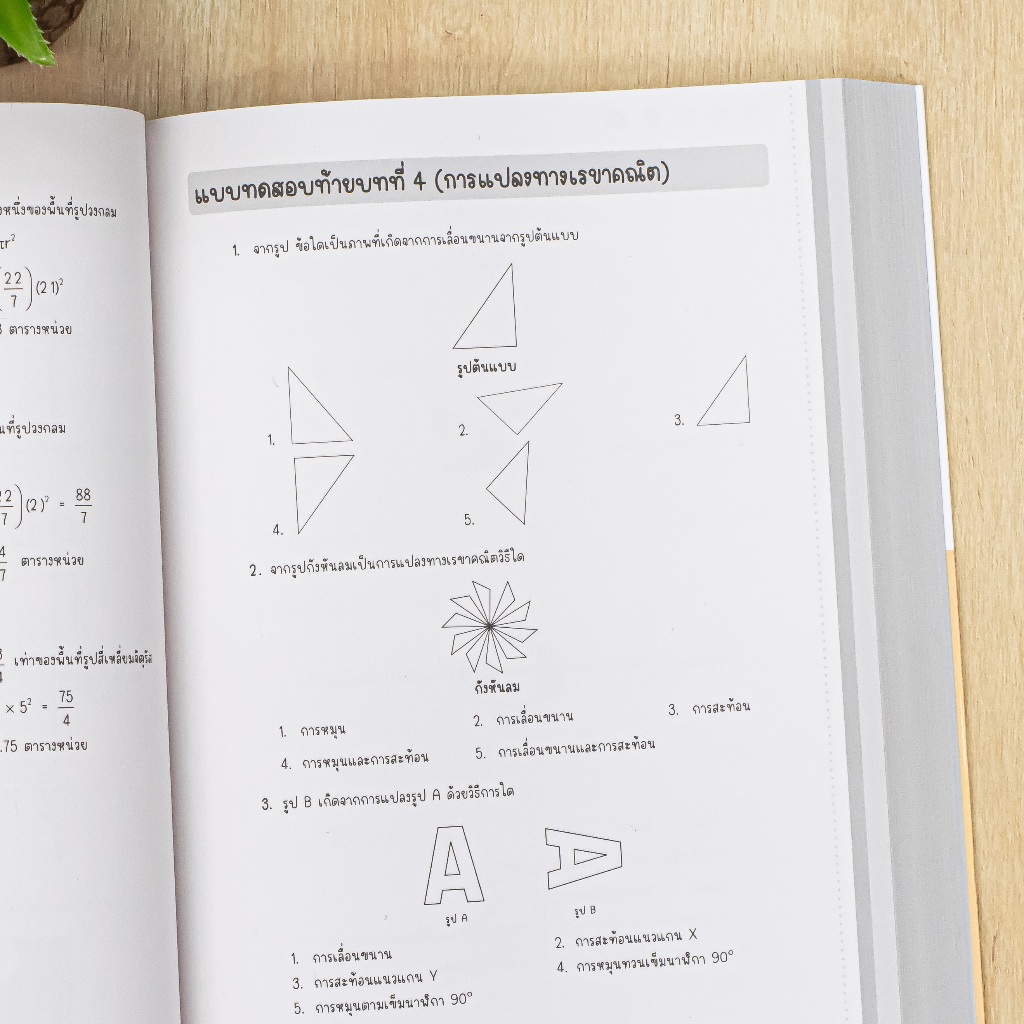 หนึ่งของพื้นที่รูปวงกลม
πr²
(22/7)(21)²
ตารางหน่วย
พื้นที่รูปวงกลม
(22/7)(2)² = 88/7
ตารางหน่วย
เท่าของพื้นที่รูปสี่เหลี่ยมจัตุรัส
× 5² = 75/4
.75 ตารางหน่วย
แบบทดสอบท้ายบทที่ 4 (การแปลงทางเรขาคณิต)
1. จากรูป ข้อใดเป็นภาพที่เกิดจากการเลื่อนขนานจากรูปต้นแบบ
รูปต้นแบบ
1. 2. 3.
4. 5.
2. จากรูปกังหันลมเป็นการแปลงทางเรขาคณิตวิธีใด
กังหันลม
1. การหมุน 2. การเลื่อนขนาน 3. การสะท้อน
4. การหมุนและการสะท้อน 5. การเลื่อนขนานและการสะท้อน
3. รูป B เกิดจากการแปลงรูป A ด้วยวิธีการใด
รูป A รูป B
1. การเลื่อนขนาน 2. การสะท้อนแนวแกน X
3. การสะท้อนแนวแกน Y 4. การหมุนทวนเข็มนาฬิกา 90°
5. การหมุนตามเข็มนาฬิกา 90°